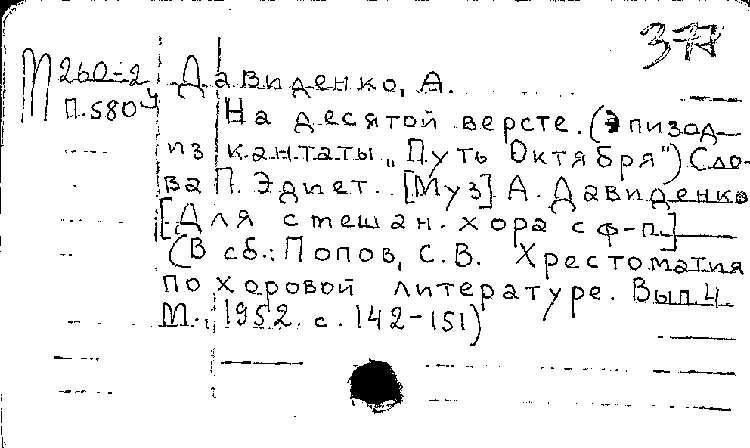 377
М 260-2 Давиденко, А.
П.580ч На десятой версте. (Эпизод
из кантаты „Путь Октября") Сло-
ва П. Эдиет. [Муз] А. Давиденко
[Для смешан. хора с ф-п.]
(В сб.: Попов, С.В. Хрестоматия
по хоровой литературе. Вып 4.
М., 1952. с. 142-151)